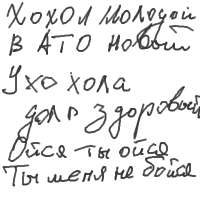 Хохол молодой
В АТО новый
Ухо хола
дол здоровый
Ойся ты ойся
Ты меня не бойся